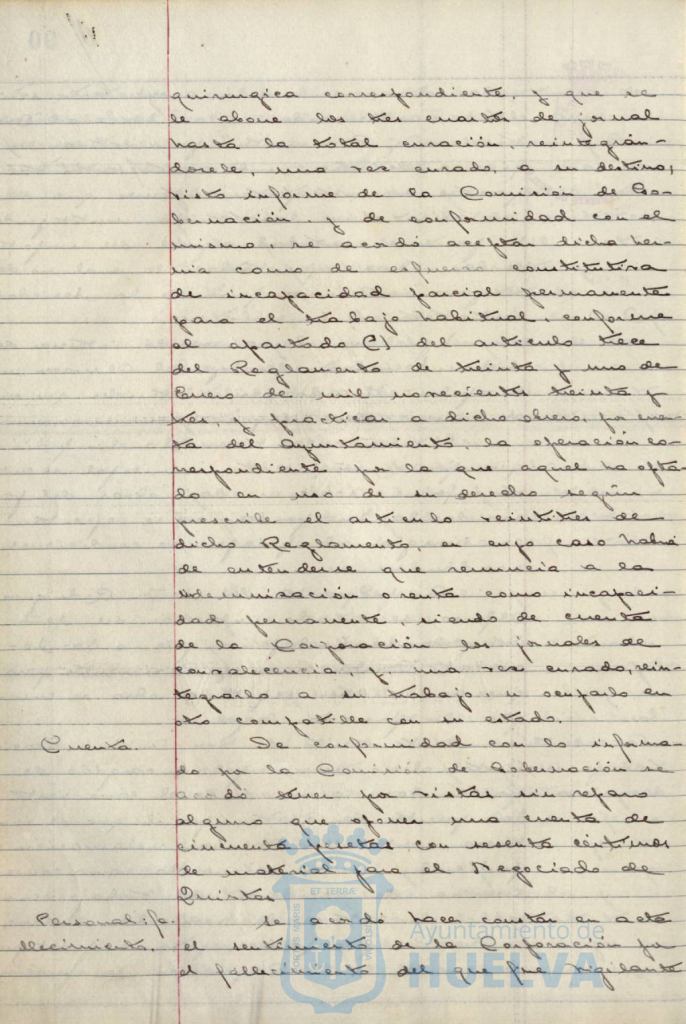 quirurgica correspondiente, y que se
le abone los tres cuartos de jornal
hasta la total curación, reintegrán-
dosele, una vez curado, a su destino,
visto informe de la Comisión de Go-
bernación, y de conformidad con el
mismo, se acordó aceptar dicha her-
nia como de esfuerzo constitutiva
de incapacidad parcial permanente
para el trabajo habitual, conforme
al apartado C) del articulo trece
del Reglamento de treinta y uno de
Enero de mil novecientos treinta y
tres, y practicar a dicho obrero, por cuen-
ta del Ayuntamiento, la operación co-
rrespondiente por la que aquel ha opta-
do en uso de su derecho según
prescribe el articulo veintitres de
dicho Reglamento, en cuyo caso habrá
de entenderse que renuncia a la
indemnización o renta como incapaci-
dad permanente, siendo de cuenta
de la Corporación los jornales de
convalecencia, y, una vez curado, rein-
tegrarlo a su trabajo, u ocuparlo en
otro compatible con su estado.
Cuenta. De conformidad con lo informa-
do por la Comisión de Gobernación se
acordó tener por vistas sin reparo
alguno que oponer una cuenta de
cincuenta pesetas con sesenta céntimos
de material para el Negociado de
Quintas
Personal: fa- Se acordó hacer constar en acta
llecimiento. el sentimiento de la Corporación por
el fallecimiento del que fué vigilante
Ayuntamiento de
HUELVA